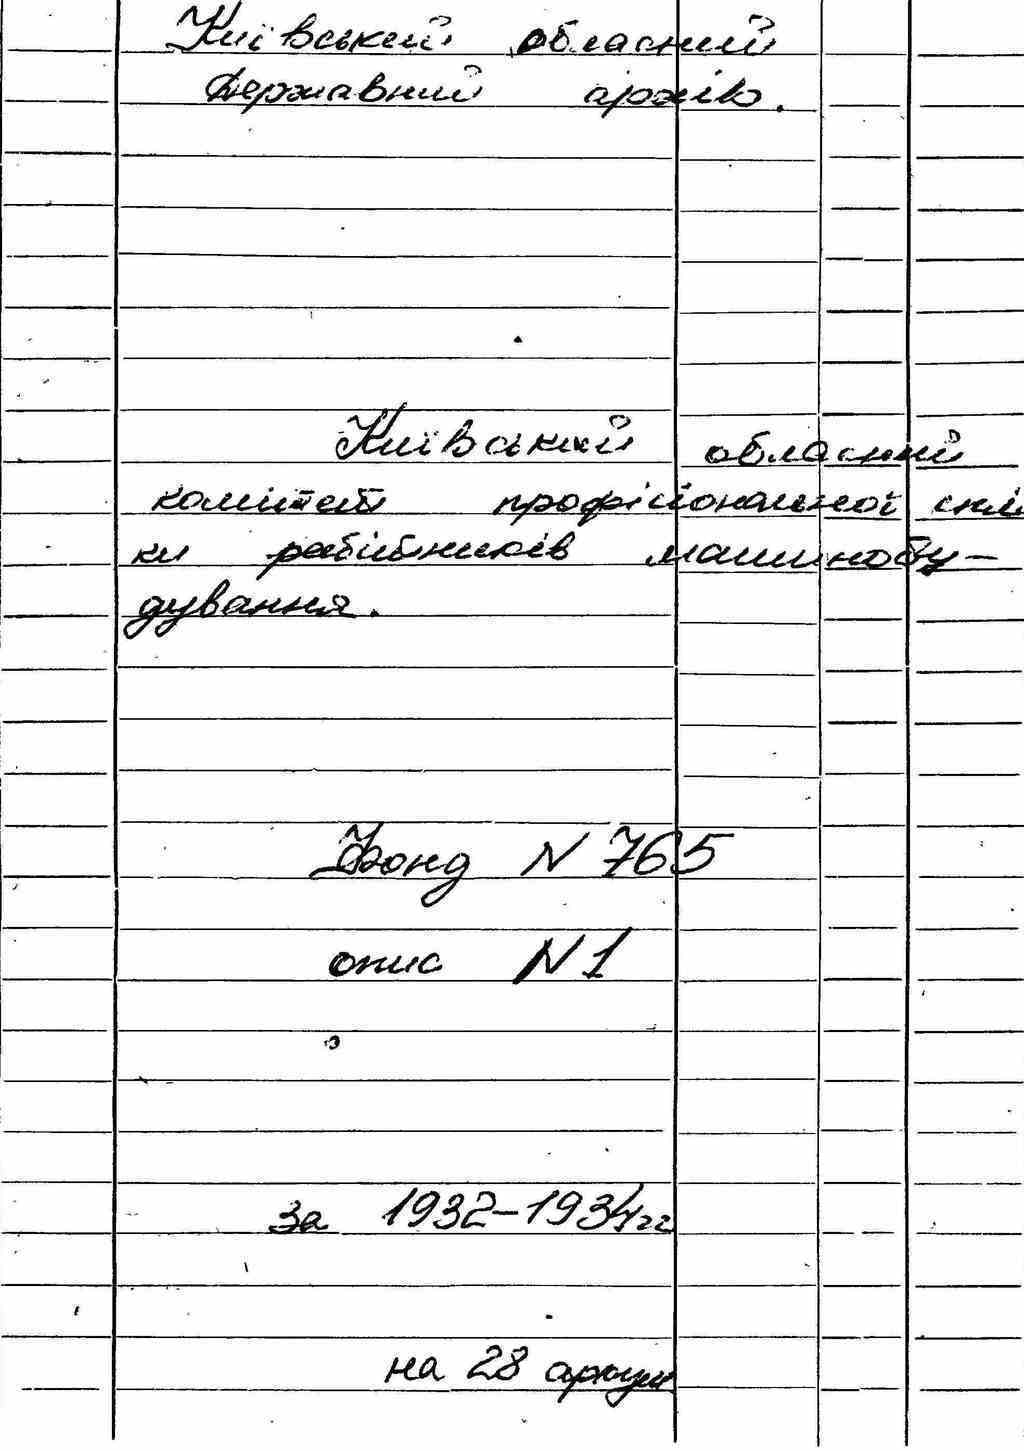 Київський обласний
Державний архів.
Київський обласний
комітет професіональної спіл
ки робітників машинобу-
дування.
Фонд N 765
опис N 1
за 1932-1934 гг
на 28 аркуш